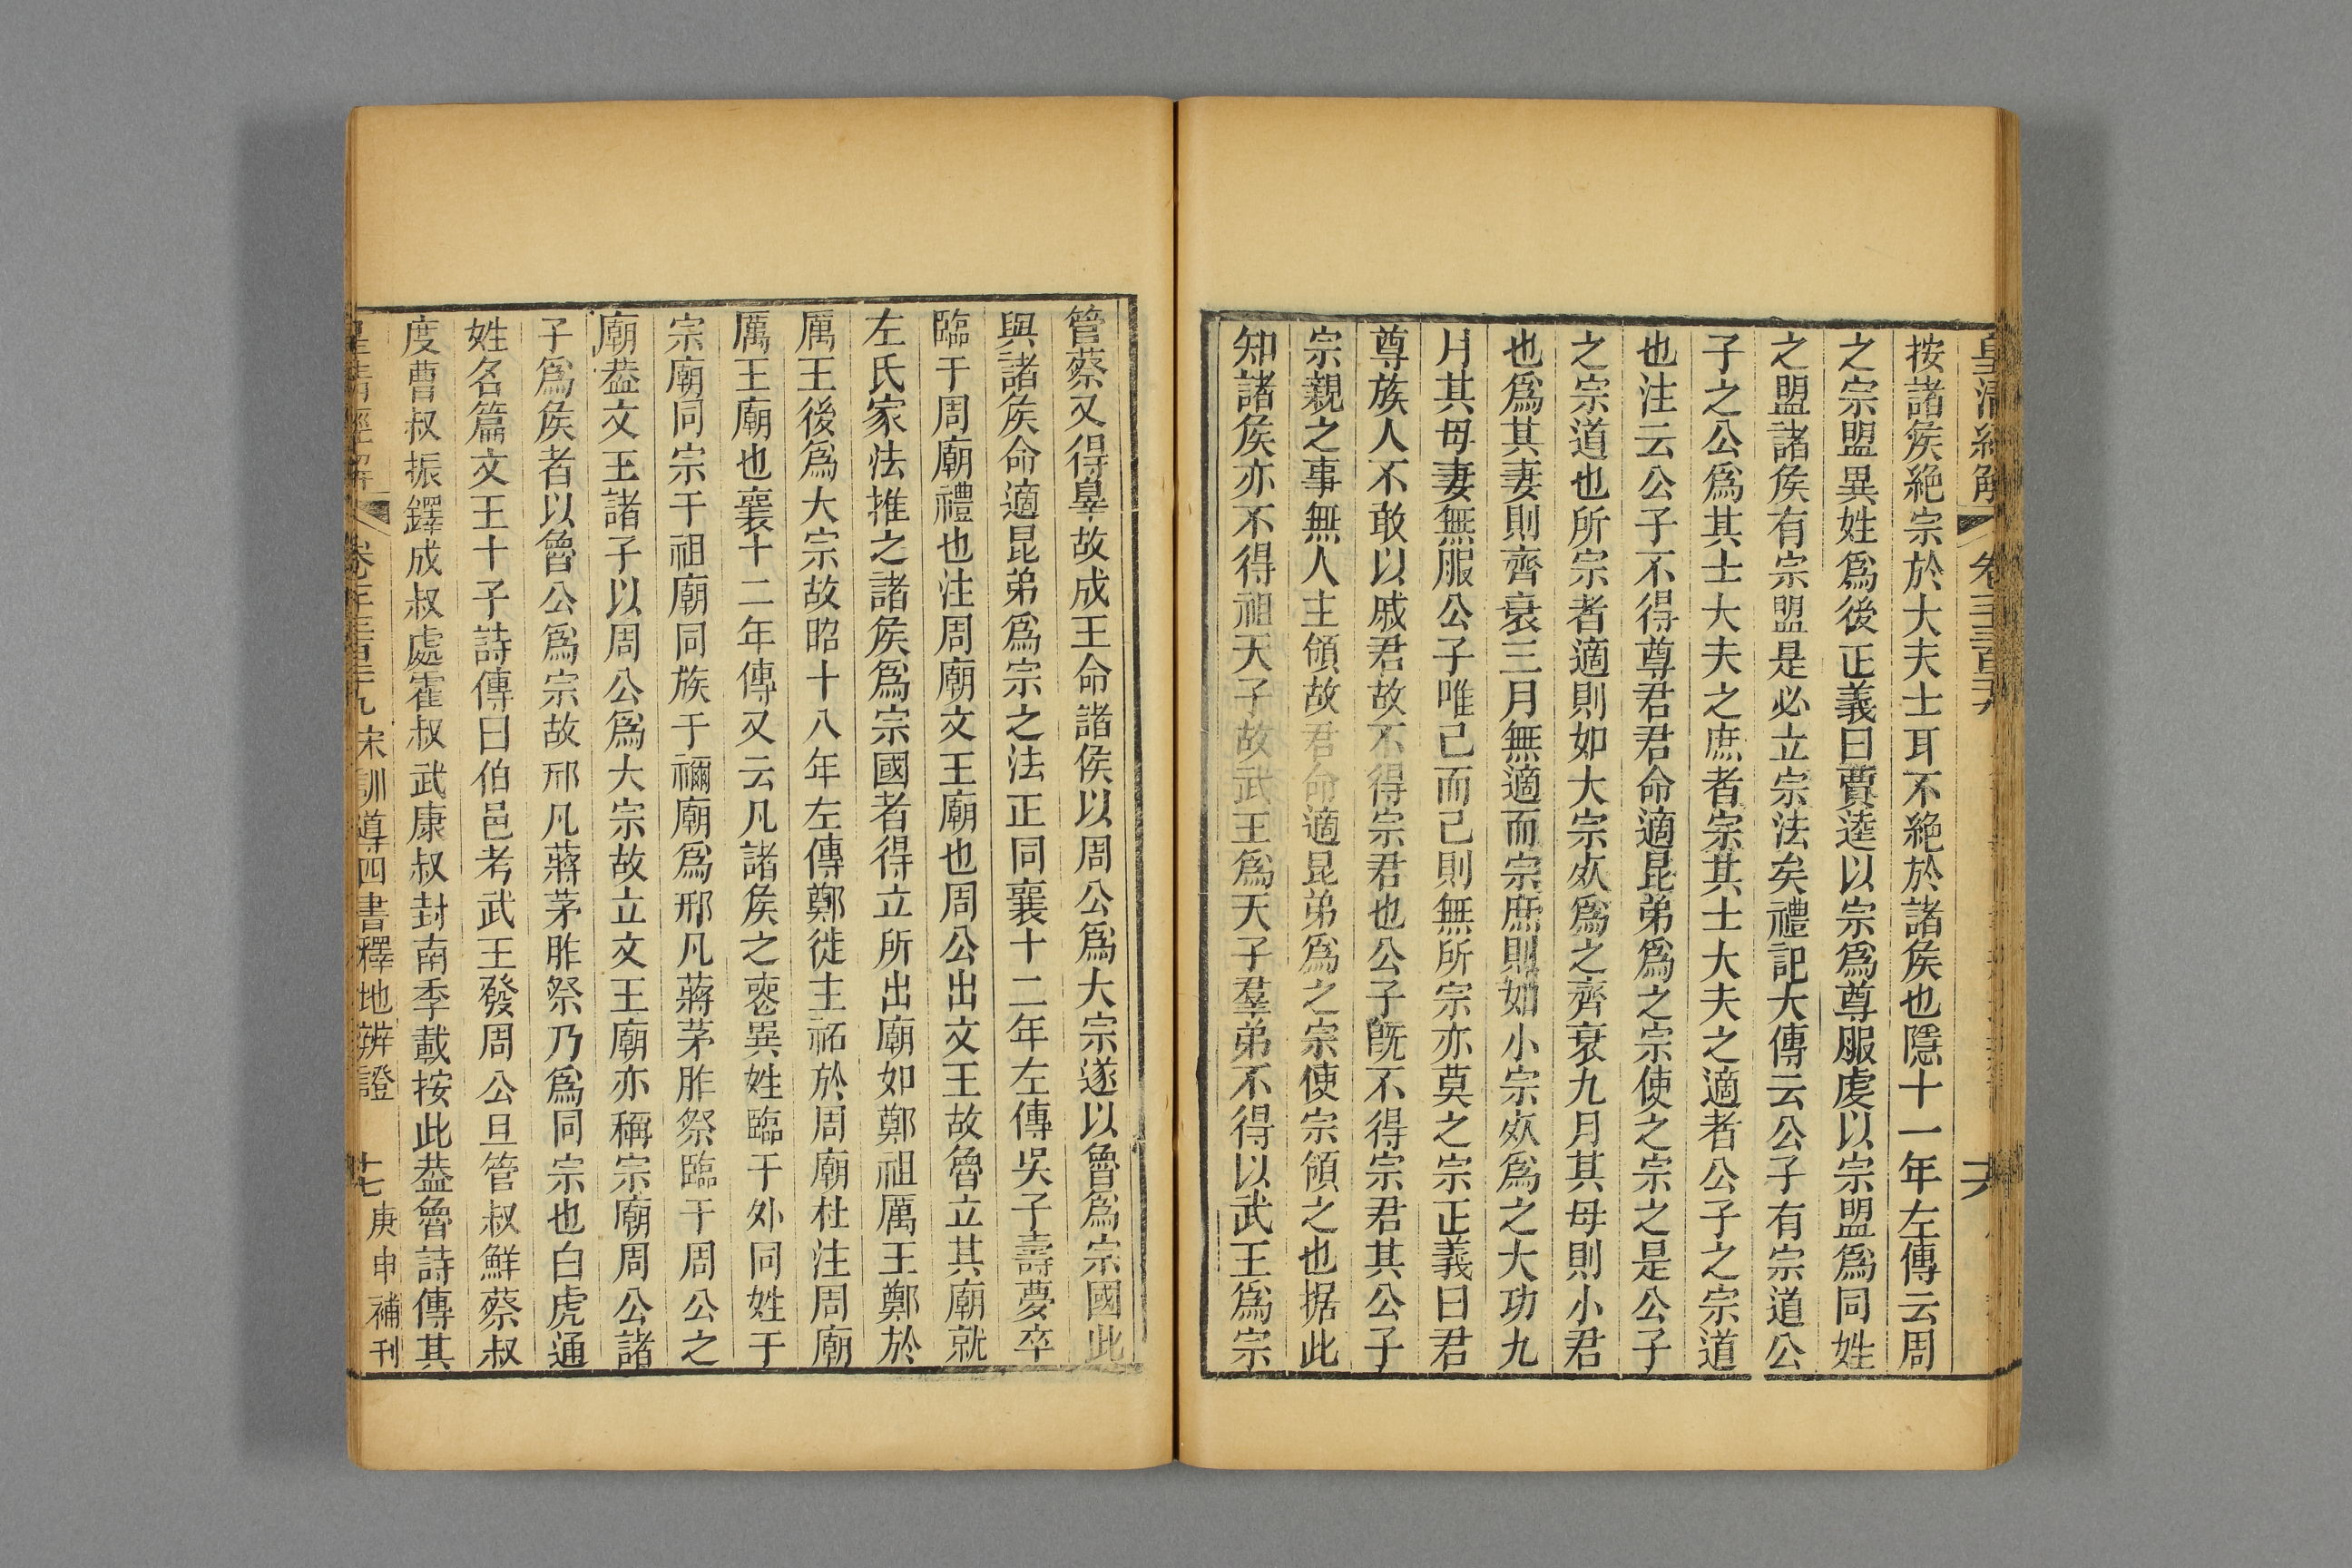 皇清經解 卷三 六
按諸矦絶宗於大夫士耳不絶於諸矦也隱十一年左傳云周
之宗盟異姓爲後正義曰賈逵以宗爲尊服虔以宗盟爲同姓
之盟諸矦有宗盟是必立宗法矣禮記大傳云公子有宗道公
子之公爲其士大夫之庶者宗其士大夫之適者公子之宗道
也注云公子不得尊君君命適昆弟爲之宗使之宗之是公子
之宗道也所宗者適則如大宗㱙爲之齊衰九月其母則小君
也爲其妻則齊衰三月無適而宗庶則如小宗㱙爲之大功九
月其母妻無服公子唯己而己則無所宗亦莫之宗正義曰君
尊族人不敢以戚君故不得宗君也公子旣不得宗君其公子
宗親之事無人主領故君命適昆弟爲之宗使宗領之也据此
知諸矦亦不得祖天子故武王爲天子羣弟不得以武王爲宗
管蔡又得辠故成王命諸侯以周公爲大宗遂以魯爲宗國此
與諸矦命適昆弟爲宗之法正同襄十二年左傳吳子壽夢卒
臨于周廟禮也注周廟文王廟也周公出文王故魯立其廟就
左氏家法推之諸矦爲宗國者得立所出廟如鄭祖厲王鄭於
厲王後爲大宗故昭十八年左傳鄭徙主祏於周廟杜注周廟
厲王廟也襄十二年傳又云凡諸矦之喪異姓臨于外同姓于
宗廟同宗于祖廟同族于禰廟爲邢凡蔣茅胙祭臨于周公之
廟葢文王諸子以周公爲大宗故立文王廟亦稱宗廟周公諸
子爲矦者以魯公爲宗故邢凡蔣茅胙祭乃爲同宗也白虎通
姓名篇文王十子詩傳曰伯邑考武王發周公旦管叔鮮蔡叔
度曹叔振鐸成叔處霍叔武康叔封南季載按此葢魯詩傳其
皇清經解 卷 九 宋訓導四書釋地辨證 十七 庚申補刊